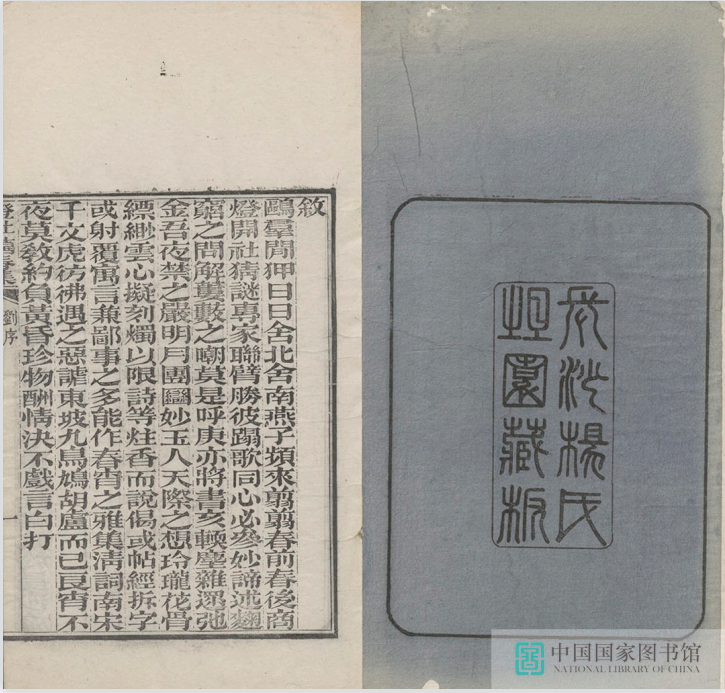 長沙楊氏
坦園藏板
敘
鷗羣閒狎日日舍北舍南燕子頻來翦翦春前春後商
燈開社猜謎專家聯臂勝彼蹋歌同心必參妙諦述麴
窮之問解窶藪之嘲莫是呼庚亦將書亥輭塵雜遝弛
金吾夜禁之嚴明月團圞妙玉人天際之想玲瓏花骨
縹緲雲心擬刻燭以限詩等炷香而說偈或帖經拆字
或射覆寓言兼鄙事之多能作春宵之雅集淸詞南宋
千文虎彷彿遇之惡謔東坡九鳥鳩胡盧而已良宵不
夜莫敎約負黃昏珍物酬情決不戲言白打
劉序
一
中国国家图书馆
NATIONAL LIBRARY OF CHINA